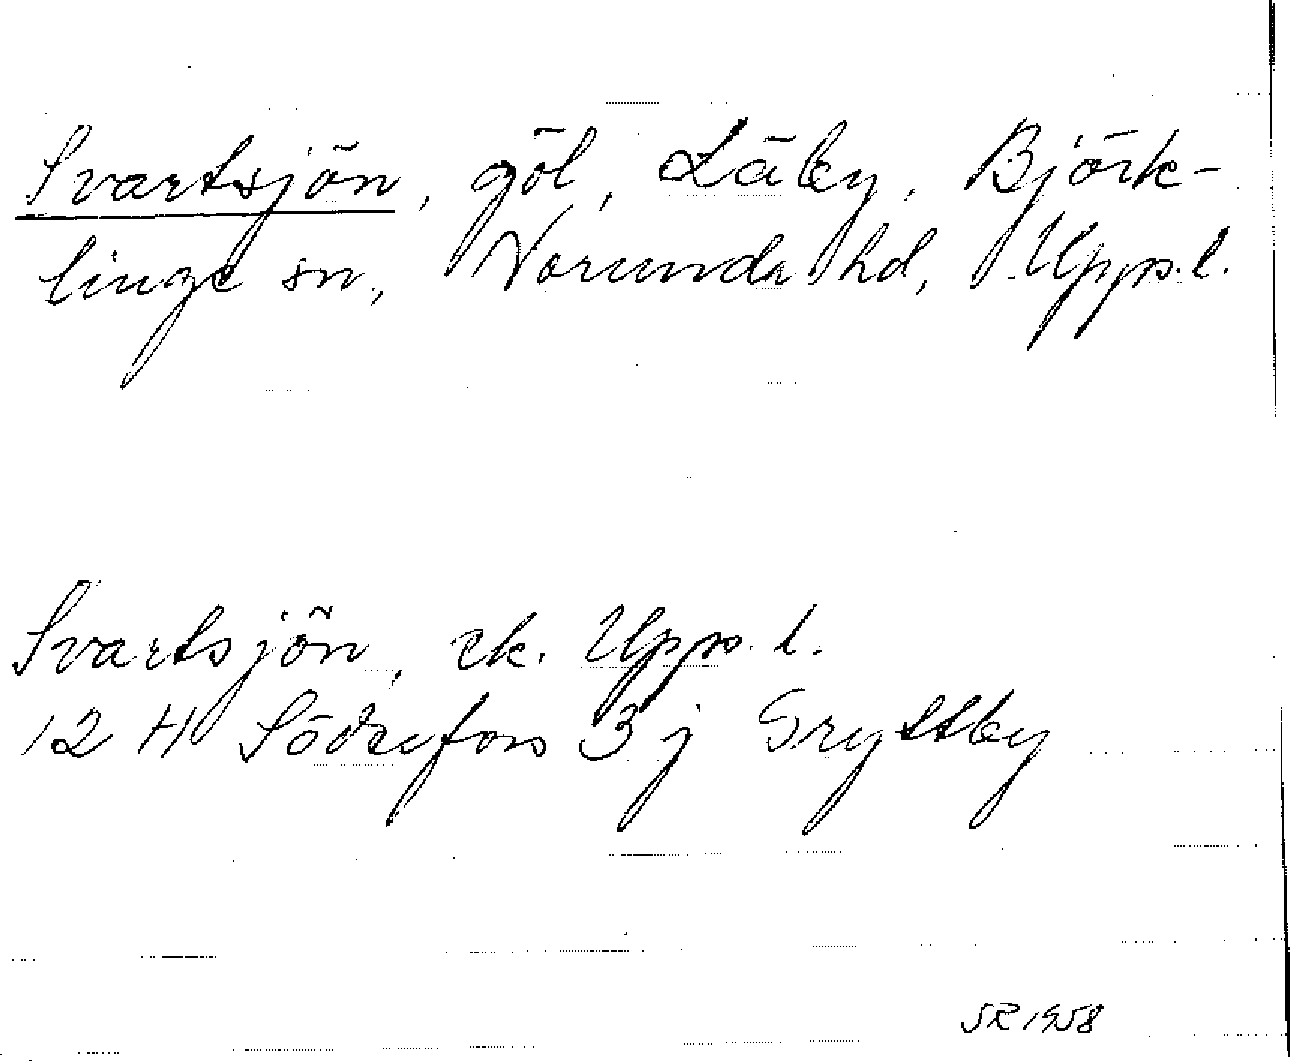 Svartsjön, göl, Läby, Björk-
linge sn., Norunda hd, Uppl.
Svartsjön, ek. Uppl.
12 H Söderfors 3 j Gryttby
SR 1958